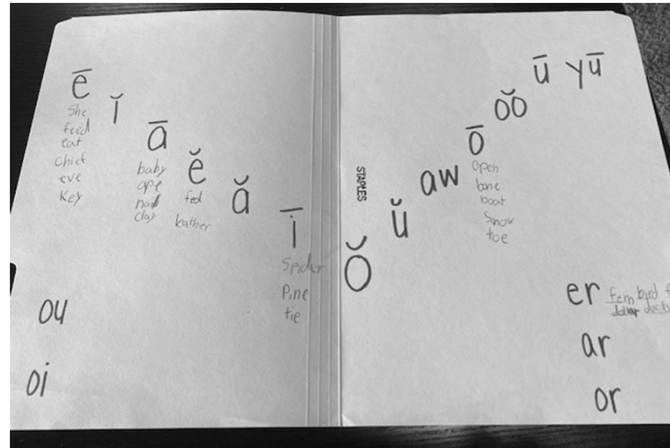 ē
she
feed
eat
chief
eve
key
ĭ
ā
baby
ape
nail
clay
ĕ
fed
leather
ă
ī
spider
pine
tie
ou
oi
STAPLES
ŏ
ŭ
aw
ō
open
bone
boat
snow
toe
o͝o
ū yū
er fern bird
dollar
ar
or